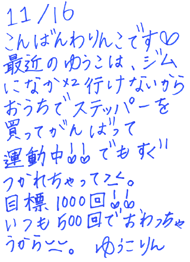 11/16
こんばんわりんこです♡
最近のゆうこは、ジム
になか×2行けないから
おうちでステッパーを
買ってがんばって
運動中!! でもすぐ
つかれちゃって>_<。
目標1000回!!
いつも500回でおわっちゃ
うから‿‿。 ゆうこりん